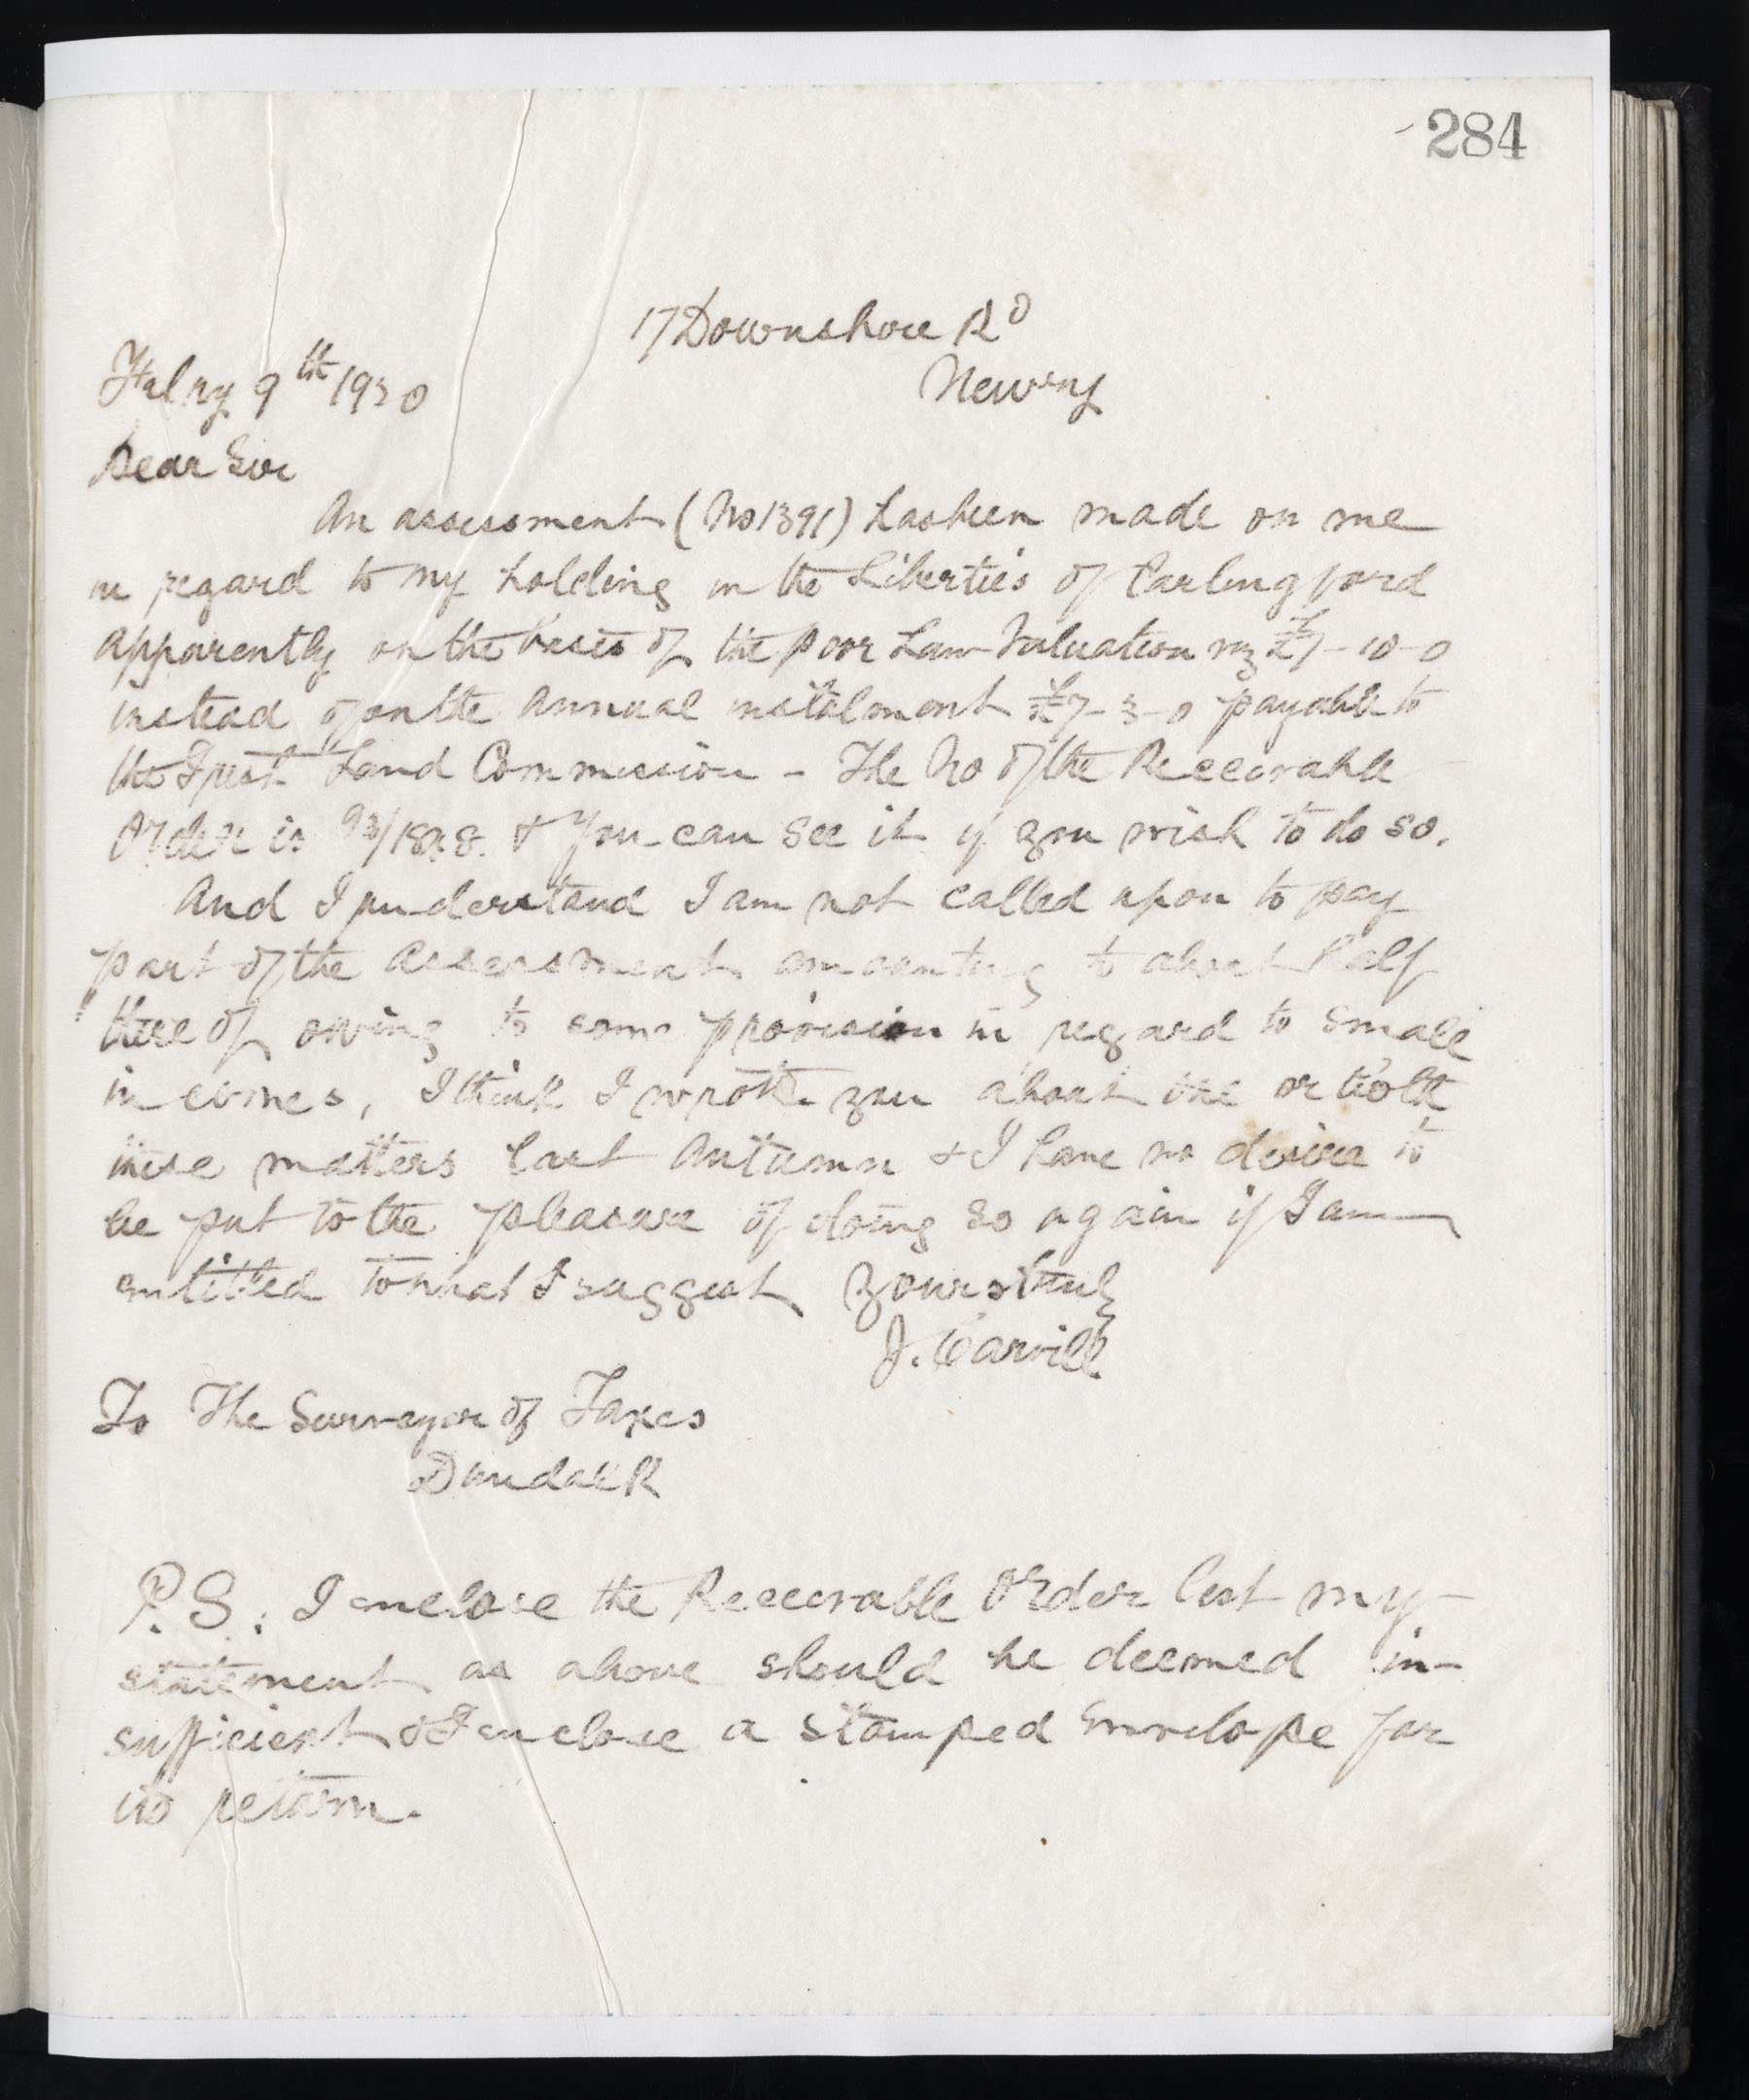 284
17 Downshire Rd
Febry 9th 1920
Newry
Dear Sir
An assessment (No 1391) has been made on me
in regard to my holding in the Liberties of Carlingford
apparently on the basis of the Poor Law Valuation viz £7-10-0
instead of on the annual instalment £7-3-0 payable to
the Irish Land Commission - The No of the Receivable
Order is & you can see it if you wish to do so.
And I understand I am not called upon to pay
part of the assessment amounting to about half
thereof owing to some provision in regard to small
incomes, I think I wrote you about one or both
these matters last Autumn & I have no desire to
be put to the pleasure of doing so again if I am
entitled to what I suggest Yours truly
J. Carvill
To The Surveyor of Taxes
Dundalk
P.S. I enclose the Receivable Order lest my
statement as above should be deemed in-
sufficient & I enclose a stamped envelope for
its return.